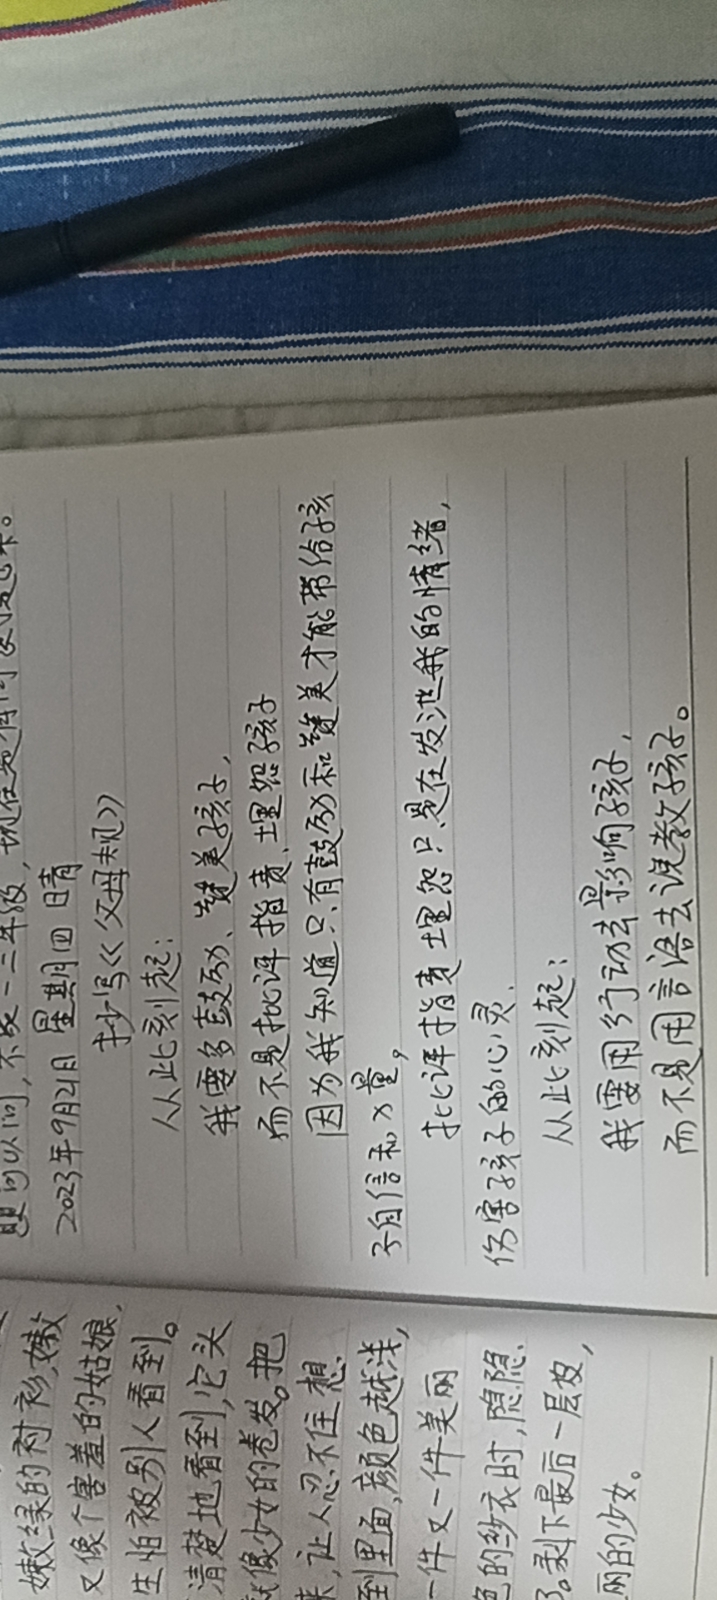 题可以问，不
2023年9月21日 星期四 晴
抄写《父母规》
从此刻起：
我要多鼓励、赞美孩子，
而不是批评指责、埋怨孩子
因为我知道只有鼓励和赞美才能带给孩
子自信和力量，
批评指责埋怨只是在发泄我的情绪，
伤害孩子的心灵.
从此刻起：
我要用行动去影响孩子，
而不是用言语去说教孩子。
嫩绿的衬衫,嫩
又像个害羞的姑娘,
生怕被别人看到。
清楚地看到,它头
就像少女的卷发。把
来,让人忍不住想.
到里面,颜色越浅,
一件又一件美丽
色的纱衣时,隐隐.
剩下最后一层皮,
丽的少女。